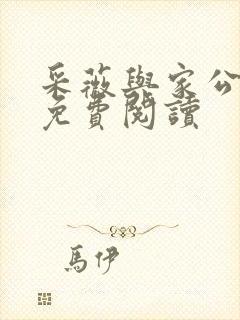 采薇與家公
免費閱讀
馬伊